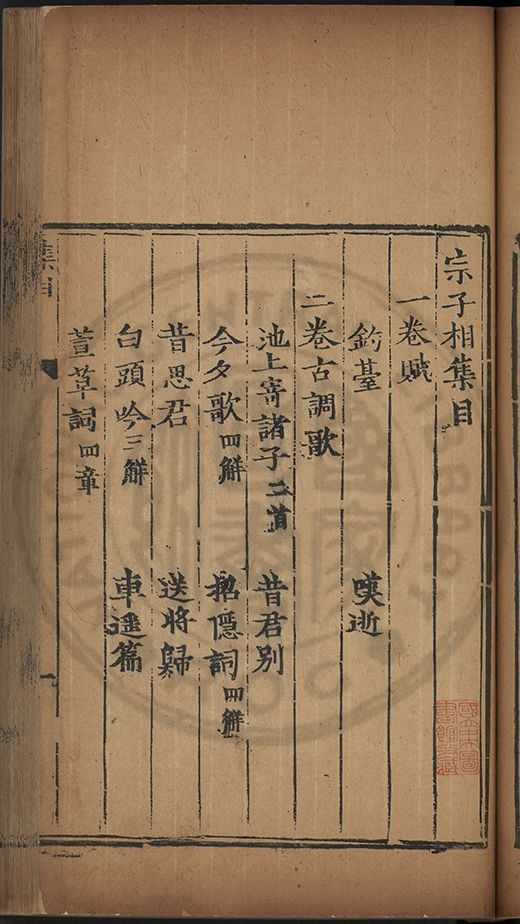 宗子相集目
一卷賦
釣臺 嘆逝
二卷古調歌
池上寄諸子二首 昔君別
今夕歌四解 招隱詞四解
昔思君 送將歸
白頭吟三解 車遥篇
萱草詞四章
集目
一
國立中央圖書館收藏